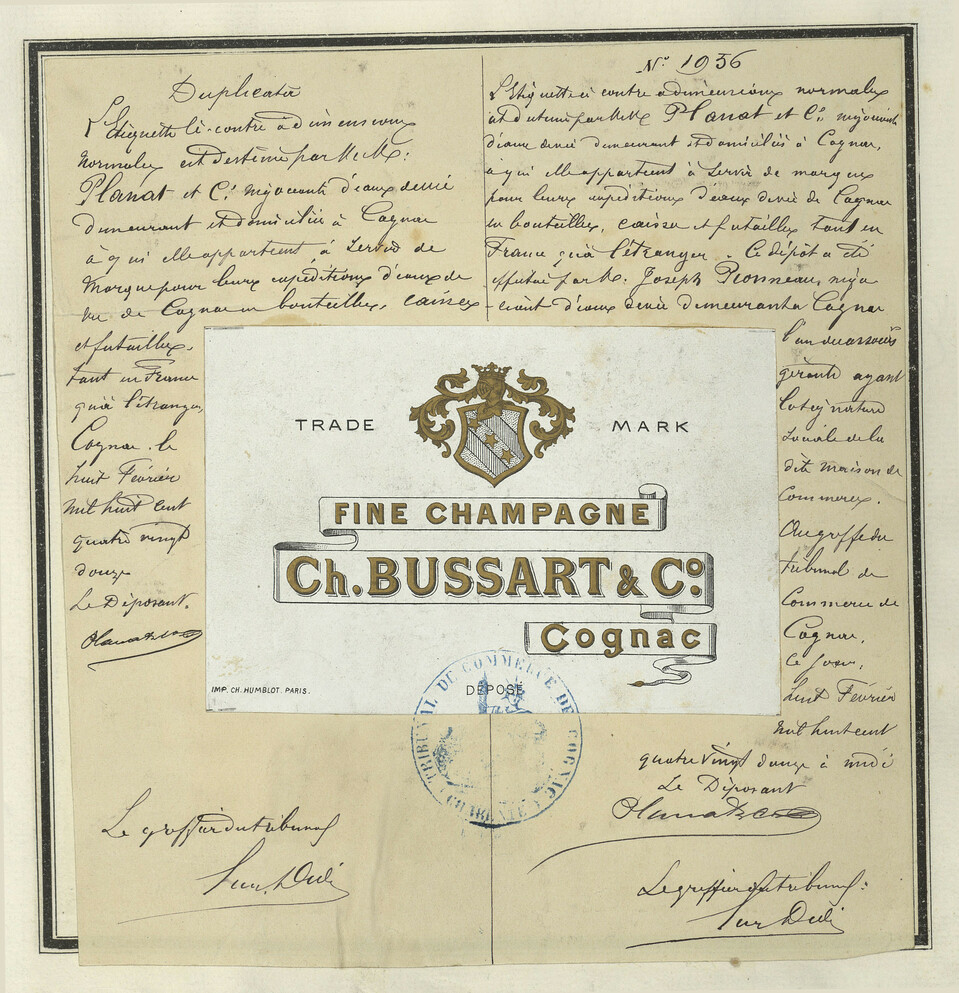 Duplicata
L'Etiquette ci-contre a dimensions
normales est destiné par MM:
Planat et Cie négociants d'eaux de vie
demeurant et domiciliés à Cognac
à qui elle appartient, à servir de
marque pour leurs expéditions d'eaux de
vie de Cognac en bouteilles, caisses
et futailles.
tant en France
qu'à l'étranger,
Cognac. le
huit Février
mil huit cent
quatre vingt
douze
Le Déposant.
Planat & Co
Le greffier du tribunal
No 1956
L'Etiquette ci contre a dimensions normales
est destiné par MM Planat et Cie négociants
d'eaux de vie demeurant et domiciliés à Cognac,
à qui elle appartient à servir de marque
pour leurs expéditions d'eaux de vie de Cognac
en bouteilles, caisses et futailles tant en
France qu'à l'étranger. Ce dépôt a été
effectué par M. Joseph Pionneau, négo
-ciant d'eaux de vie demeurant à Cognac
l'un des associés
gérants ayant
la signature
sociale de la
dite maison de
Commerce.
Au greffe du
tribunal de
Commerce de
Cognac,
Ce jour,
huit Février
mil huit cent
quatre vingt douze à midi
Le Déposant
Planat & Co
Le greffier du tribunal:
TRADE MARK
FINE CHAMPAGNE
Ch. BUSSART & Co.
Cognac
IMP. CH. HUMBLOT. PARIS.
DÉPOSÉ
TRIBUNAL DE COMMERCE DE COGNAC
(CHARENTE)